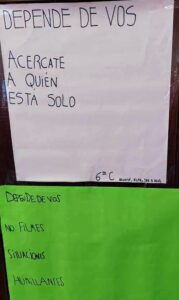 DEPENDE DE VOS
ACERCATE
A QUIÉN
ESTA SOLO
6to C
DEPENDE DE VOS
NO FILMES
SITUACIONES
HUMILLANTES